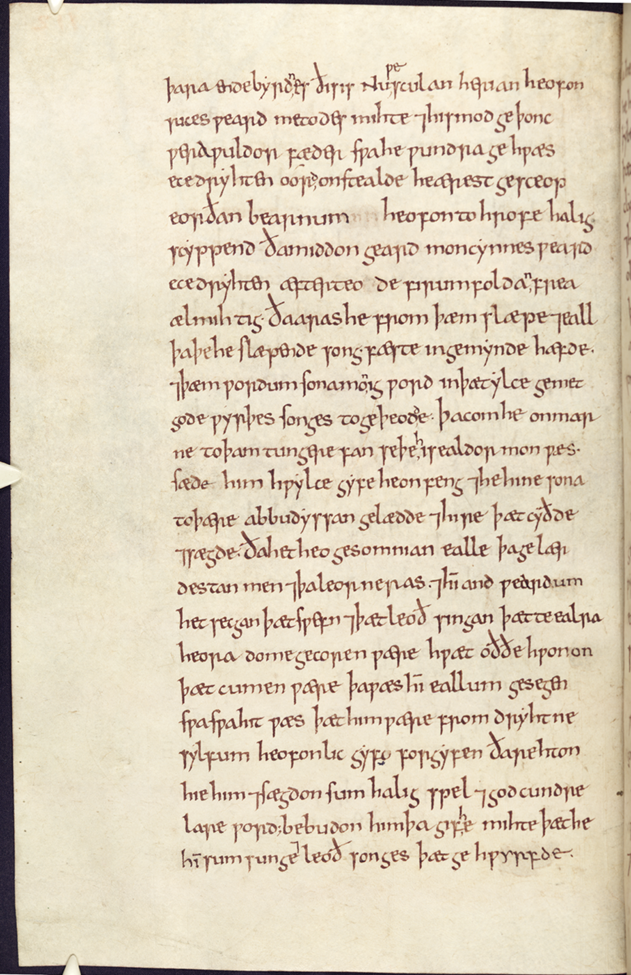 þara endebyrdnes ðis is Nu ƿe sculan herian heofon
rices ƿeard metodes mihte ⁊ his modgeþonc
ƿera ƿuldor fæder sƿa he ƿundra gehƿæs
ece dryhten oord onstealde he ærest gesceop
eorðan bearnum heofon to hrofe halig
scyppend ða middongeard moncynnes ƿeard
ece dryhten æfter teode firum foldan frea
ælmihtig. ða aras he from þæm slæpe ⁊ eall
þa þe he slæpende song fæste in gemynde hæfde.
⁊ þæm ƿordum sona monig ƿord in þæt ylce gemet
gode ƿyrþes songes togeþeodde. þa com he on mar
ne to þam tungerefan se þe his ealdormon ƿes.
sæde him hƿylce gyfe he onfeng ⁊ he hine sona
to þære abbudyssan gelædde ⁊ hire þæt cyðde
⁊ sægde. ða het heo gesomnian ealle þa gelær
destan men ⁊ þa leorneras. ⁊ him andƿeardum
het secgan þæt sƿefn ⁊ þæt leoð singan þætte ealra
heora dome gecoren ƿære hƿæt oððe hƿonon
þæt cumen ƿære þa ƿæs him eallum gesegen
sƿa sƿa hit ƿæs þæt him ƿære from dryhtne
sylfum heofonlic gyfo forgyfen ða rehton
hie him ⁊ sægdon sum halig spel ⁊ godcundre
lare ƿord; bebudon him þa gif he mihte þæt he
him sum sunge ⁊ leoð songes þæt gehƿyrfde.